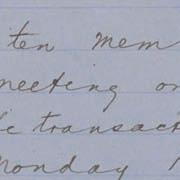 ten mem
meeting on
transact
Monday